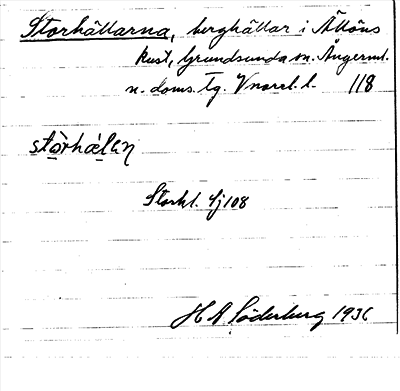 Storhällarna, berghällar i Älöns
kust, Grundsunda sn. Ångerml.
n. doms. tg. Vnorrl. l. 118
stòrhálan
Storkl. Sj 108
H A Söderberg 1936